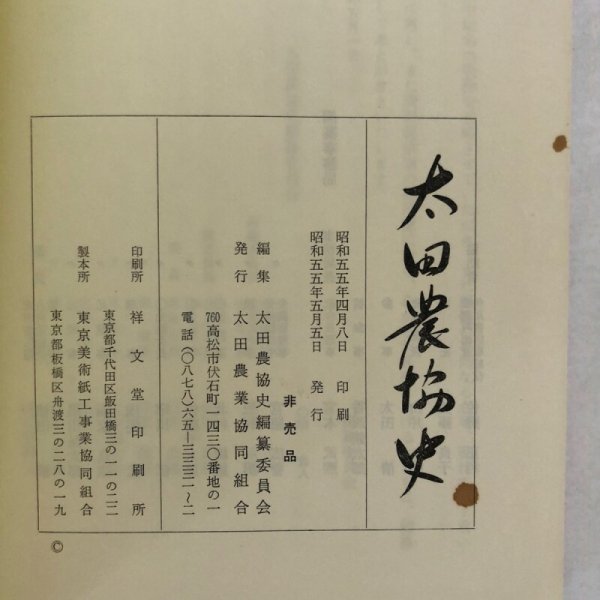 太田農協史
昭和五五年四月八日 印刷
昭和五五年五月五日 発行
非売品
編集 太田農協史編纂委員会
発行 太田農業協同組合
760高松市伏石町一四三〇番地の一
電話(〇八七八)六五―二三二一~二
印刷所 祥文堂印刷所
東京都千代田区飯田橋三の一一の二二
製本所 東京美術紙工事業協同組合
東京都板橋区舟渡三の二八の一九
©